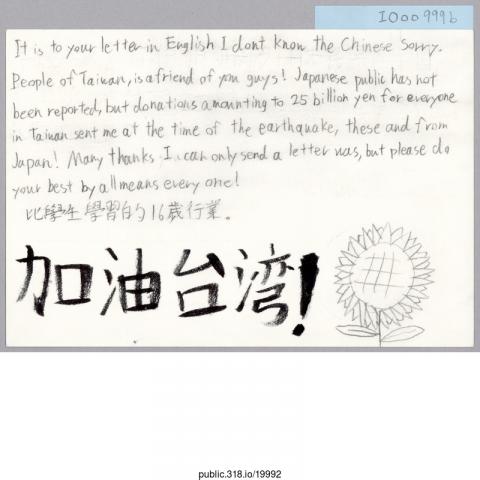 I0009996
It is to your letter in English I dont know the Chinese Sorry.
People of Taiwan, is a friend of you guys! Japanese public has not
been reported, but donations amounting to 25 billion yen for everyone
in Taiwan sent me at the time of the earthquake, these and from
Japan! Many thanks I can only send a letter was, but please do
your best by all means every one!
比學生學習的16歲行業。
加油台湾!
public.318.io/19992